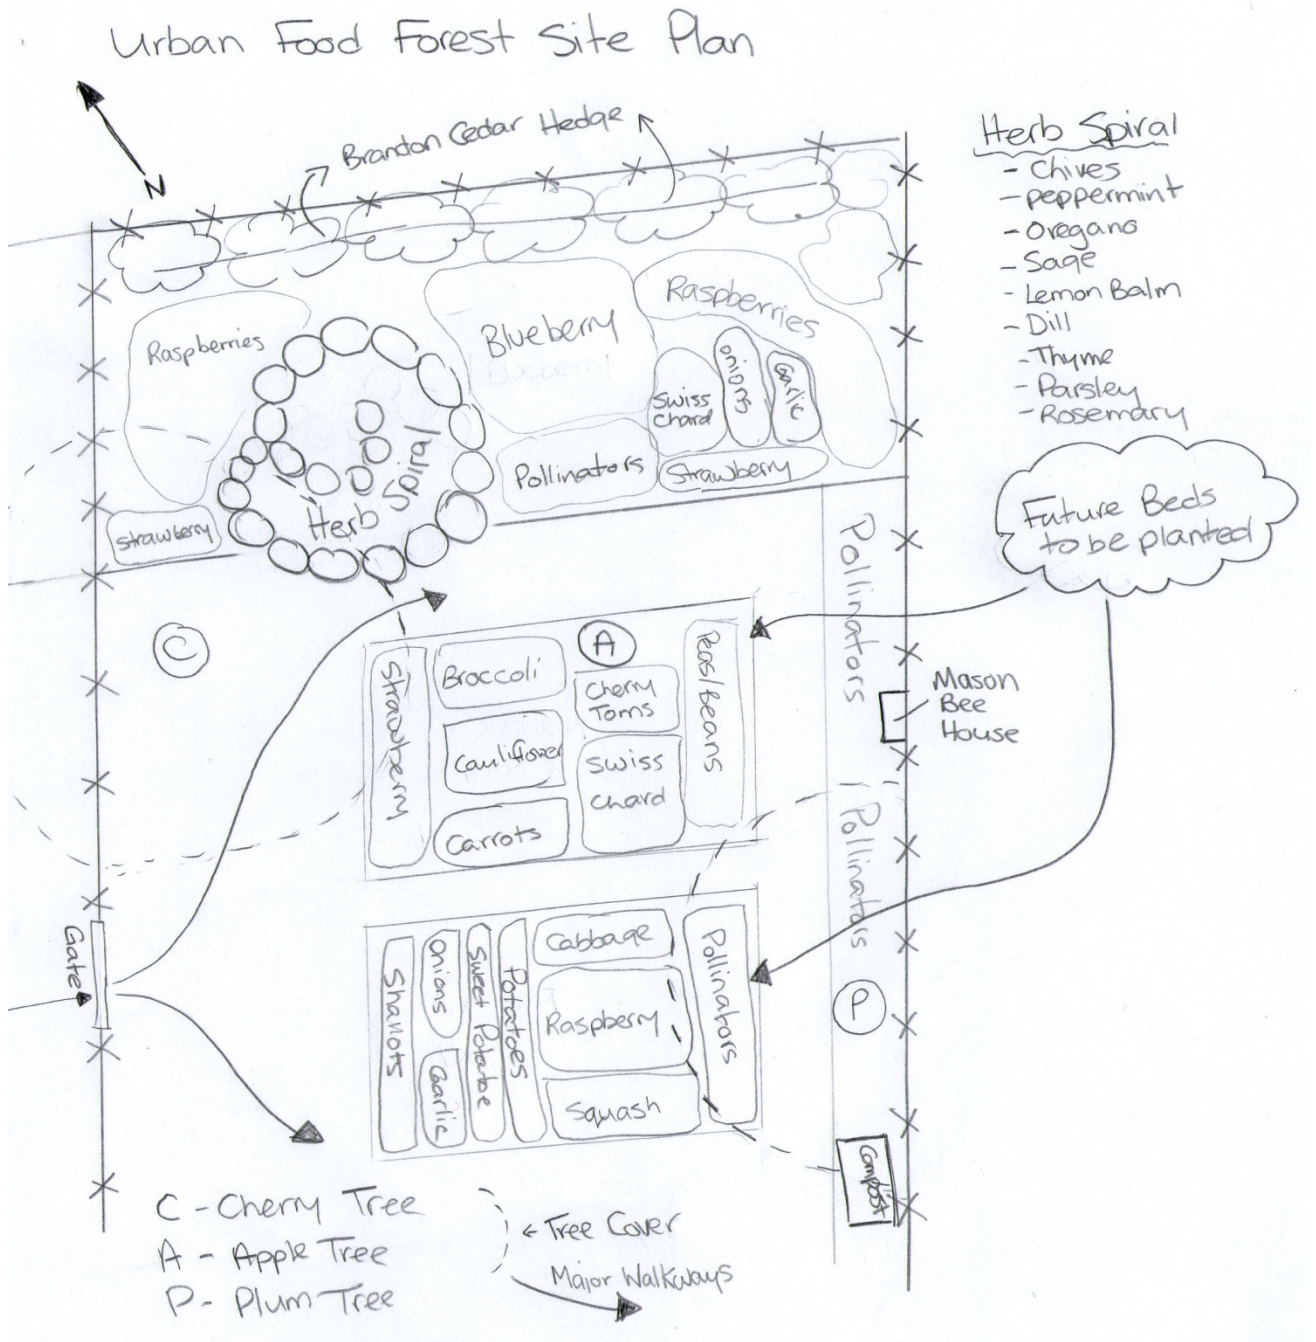 Urban Food Forest Site Plan
N
Brandon Cedar Hedge
Herb Spiral
- Chives
- peppermint
- Oregano
- Sage
- Lemon Balm
- Dill
- Thyme
- Parsley
- Rosemary
Raspberries
Blueberry
Raspberries
Swiss
Chard
Onions
Garlic
Pollinators
Strawberry
Strawberry
Herb Spiral
Future Beds
to be planted
Pollinators
C
Strawberry
Broccoli
A
Cherry
Toms
Peas/Beans
Cauliflower
Swiss
Chard
Carrots
Mason
Bee
House
Pollinators
Gate
Shallots
Onions
Garlic
Sweet Potatoe
Potatoes
Cabbage
Raspberry
Squash
Pollinators
P
Compost
C - Cherry Tree
A - Apple Tree
P - Plum Tree
Tree Cover
Major Walkways